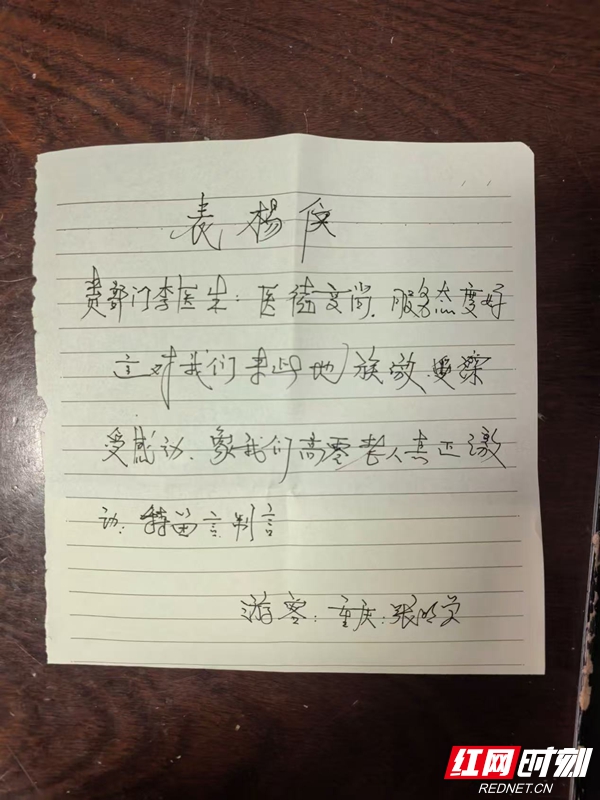 表楊信
贵部门李医生：医德高尚．服务态度好
这对我们来此地旅激深
受感动．象我们高零老人真正激
动：特留言
游客：重庆：张明
红网时刻
REDNET.CN